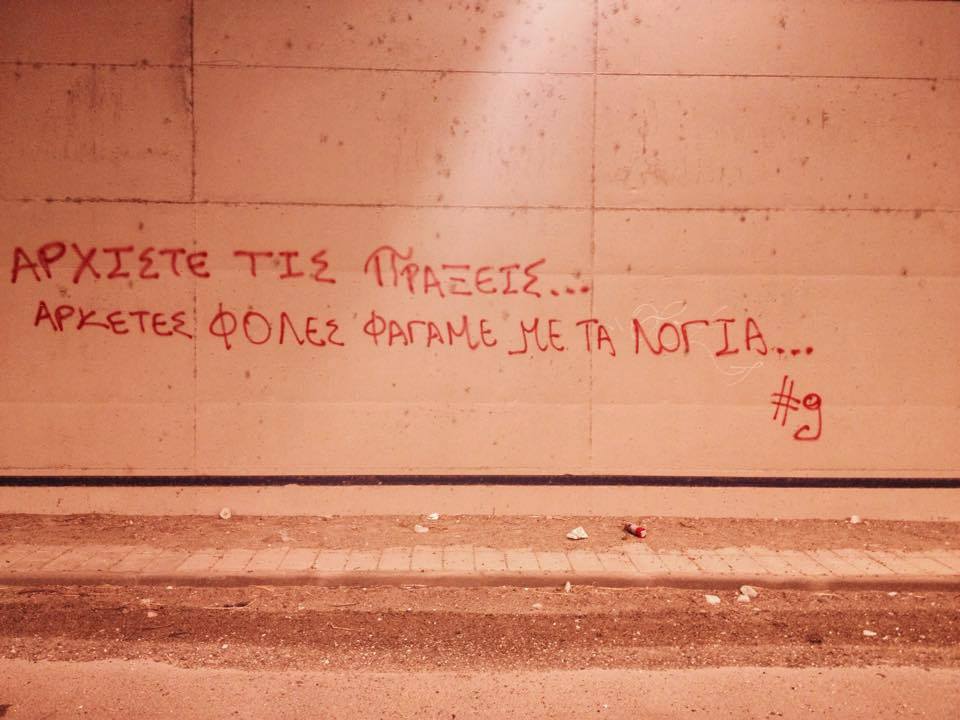 ΑΡΧΙΣΤΕ ΤΙΣ ΠΡΑΞΕΙΣ...
ΑΡΚΕΤΕΣ ΦΟΛΕΣ ΦΑΓΑΜΕ ΜΕ ΤΑ ΛΟΓΙΑ...
#g